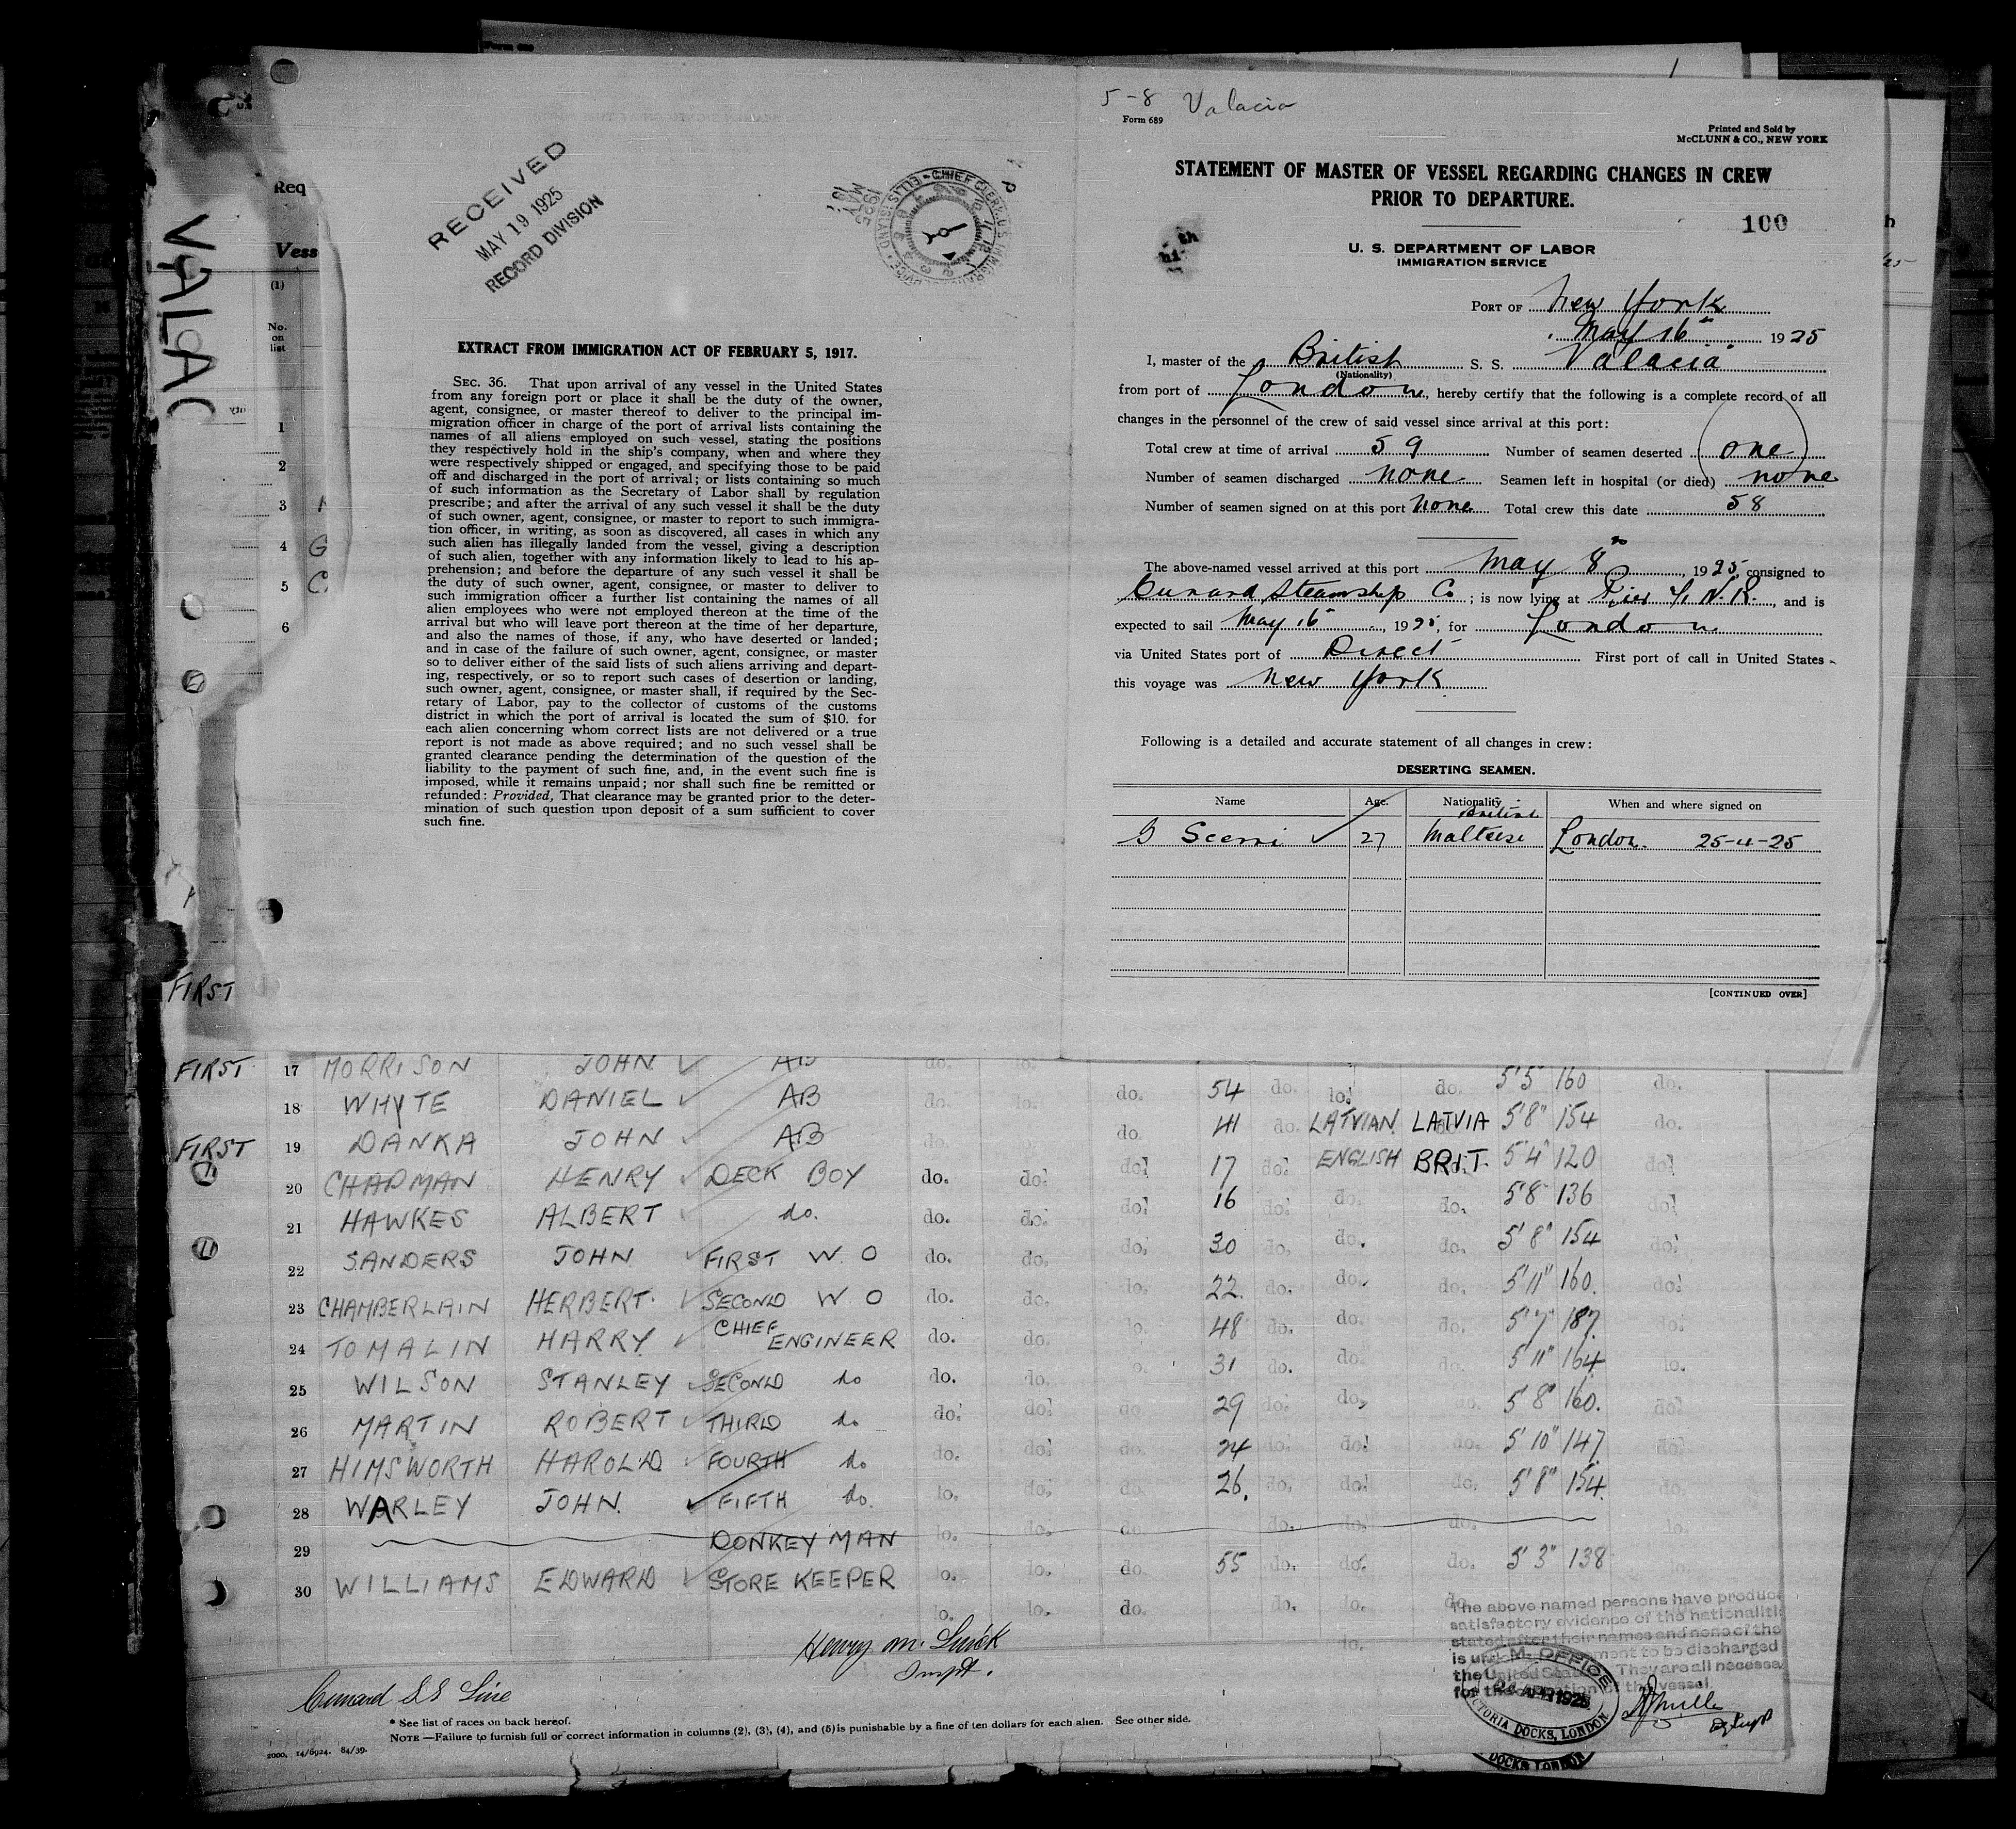 VALAC
Req
Vess
(1)
No.
on
list
1
2
3
4 G
5 C
6
FIRST
RECEIVED
MAY 19 1925
RECORD DIVISION
EXTRACT FROM IMMIGRATION ACT OF FEBRUARY 5, 1917.
SEC. 36. That upon arrival of any vessel in the United States
from any foreign port or place it shall be the duty of the owner,
agent, consignee, or master thereof to deliver to the principal im-
migration officer in charge of the port of arrival lists containing the
names of all aliens employed on such vessel, stating the positions
they respectively hold in the ship's company, when and where they
were respectively shipped or engaged, and specifying those to be paid
off and discharged in the port of arrival; or lists containing so much
of such information as the Secretary of Labor shall by regulation
prescribe; and after the arrival of any such vessel it shall be the duty
of such owner, agent, consignee, or master to report to such immigra-
tion officer, in writing, as soon as discovered, all cases in which any
such alien has illegally landed from the vessel, giving a description
of such alien, together with any information likely to lead to his ap-
prehension; and before the departure of any such vessel it shall be
the duty of such owner, agent, consignee, or master to deliver to
such immigration officer a further list containing the names of all
alien employees who were not employed thereon at the time of the
arrival but who will leave port thereon at the time of her departure,
and also the names of those, if any, who have deserted or landed;
and in case of the failure of such owner, agent, consignee, or master
so to deliver either of the said lists of such aliens arriving and depart-
ing, respectively, or so to report such cases of desertion or landing,
such owner, agent, consignee, or master shall, if required by the Sec-
retary of Labor, pay to the collector of customs of the customs
district in which the port of arrival is located the sum of $10. for
each alien concerning whom correct lists are not delivered or a true
report is not made as above required; and no such vessel shall be
granted clearance pending the determination of the question of the
liability to the payment of such fine, and, in the event such fine is
imposed, while it remains unpaid; nor shall such fine be remitted or
refunded: Provided, That clearance may be granted prior to the deter-
mination of such question upon deposit of a sum sufficient to cover
such fine.
5-8 Valacia
Form 689
Printed and Sold by
McCLUNN & CO., NEW YORK
STATEMENT OF MASTER OF VESSEL REGARDING CHANGES IN CREW
PRIOR TO DEPARTURE.
100
U. S. DEPARTMENT OF LABOR
IMMIGRATION SERVICE
PORT OF New York
May 16th 1925
I, master of the British S. S. Valacia
(Nationality)
from port of London, hereby certify that the following is a complete record of all
changes in the personnel of the crew of said vessel since arrival at this port:
Total crew at time of arrival 59 Number of seamen deserted one
Number of seamen discharged none. Seamen left in hospital (or died) none
Number of seamen signed on at this port none Total crew this date 58
The above-named vessel arrived at this port May 8th, 1925, consigned to
Cunard Steamship Co; is now lying at Pier N. R., and is
expected to sail May 16, 1925, for London
via United States port of Direct First port of call in United States
this voyage was New York
Following is a detailed and accurate statement of all changes in crew:
DESERTING SEAMEN.
Name Age. Nationality When and where signed on
British
G Scerri ✓ 27 Maltese London. 25-4-25
[CONTINUED OVER]
FIRST 17 MORRISON JOHN ✓ AB do. do.
18 WHYTE DANIEL ✓ AB do. do. do. 54 do. do. do. 5'5" 160 do.
FIRST 19 DANKA JOHN ✓ AB do. do. do. 41 do. LATVIAN LATVIA 5'8" 154 do.
20 CHAPMAN HENRY ✓ DECK BOY do. do. do. 17 do. ENGLISH BRIT. 5'4" 120 do.
21 HAWKES ALBERT ✓ do. do. do. do. 16 do. do. do. 5'8" 136 do.
22 SANDERS JOHN ✓ FIRST W. O do. do. do. 30 do. do. do. 5'8" 154 do.
23 CHAMBERLAIN HERBERT. ✓ SECOND W. O do. do. do. 22. do. do. do. 5'11" 160. do.
24 TOMALIN HARRY ✓ CHIEF ENGINEER do. do. do. 48 do. do. do. 5'7" 187. do.
25 WILSON STANLEY ✓ SECOND do do. do. do. 31 do. do. do. 5'11" 164 do.
26 MARTIN ROBERT ✓ THIRD do do. do. do. 29 do. do. do. 5'8" 160. do.
27 HIMSWORTH HAROLD ✓ FOURTH do do. do. do. 24 do. do. do. 5'10" 147. do.
28 WARLEY JOHN. ✓ FIFTH do. do. do. do. 26. do. do. do. 5'8" 154. do.
29 DONKEY MAN do. do. do. do. do. do. do.
30 WILLIAMS EDWARD ✓ STORE KEEPER do. do. do. 55 do. do. do. 5'3" 138 do.
do. do. do. do. do. do.
The above named persons have produc
satisfactory evidence of the nationaliti
stated after their names and none of the
to be discharged
the United States They are all necessa
for the operation of the vessel
Henry M.
Inspt.
Cunard SS Line
M. OFFICE
24 APR 1925
VICTORIA DOCKS, LONDON
DOCKS, LONDON
* See list of races on back hereof.
NOTE—Failure to furnish full or correct information in columns (2), (3), (4), and (5) is punishable by a fine of ten dollars for each alien. See other side.
2000. 14/6924. 84/39.